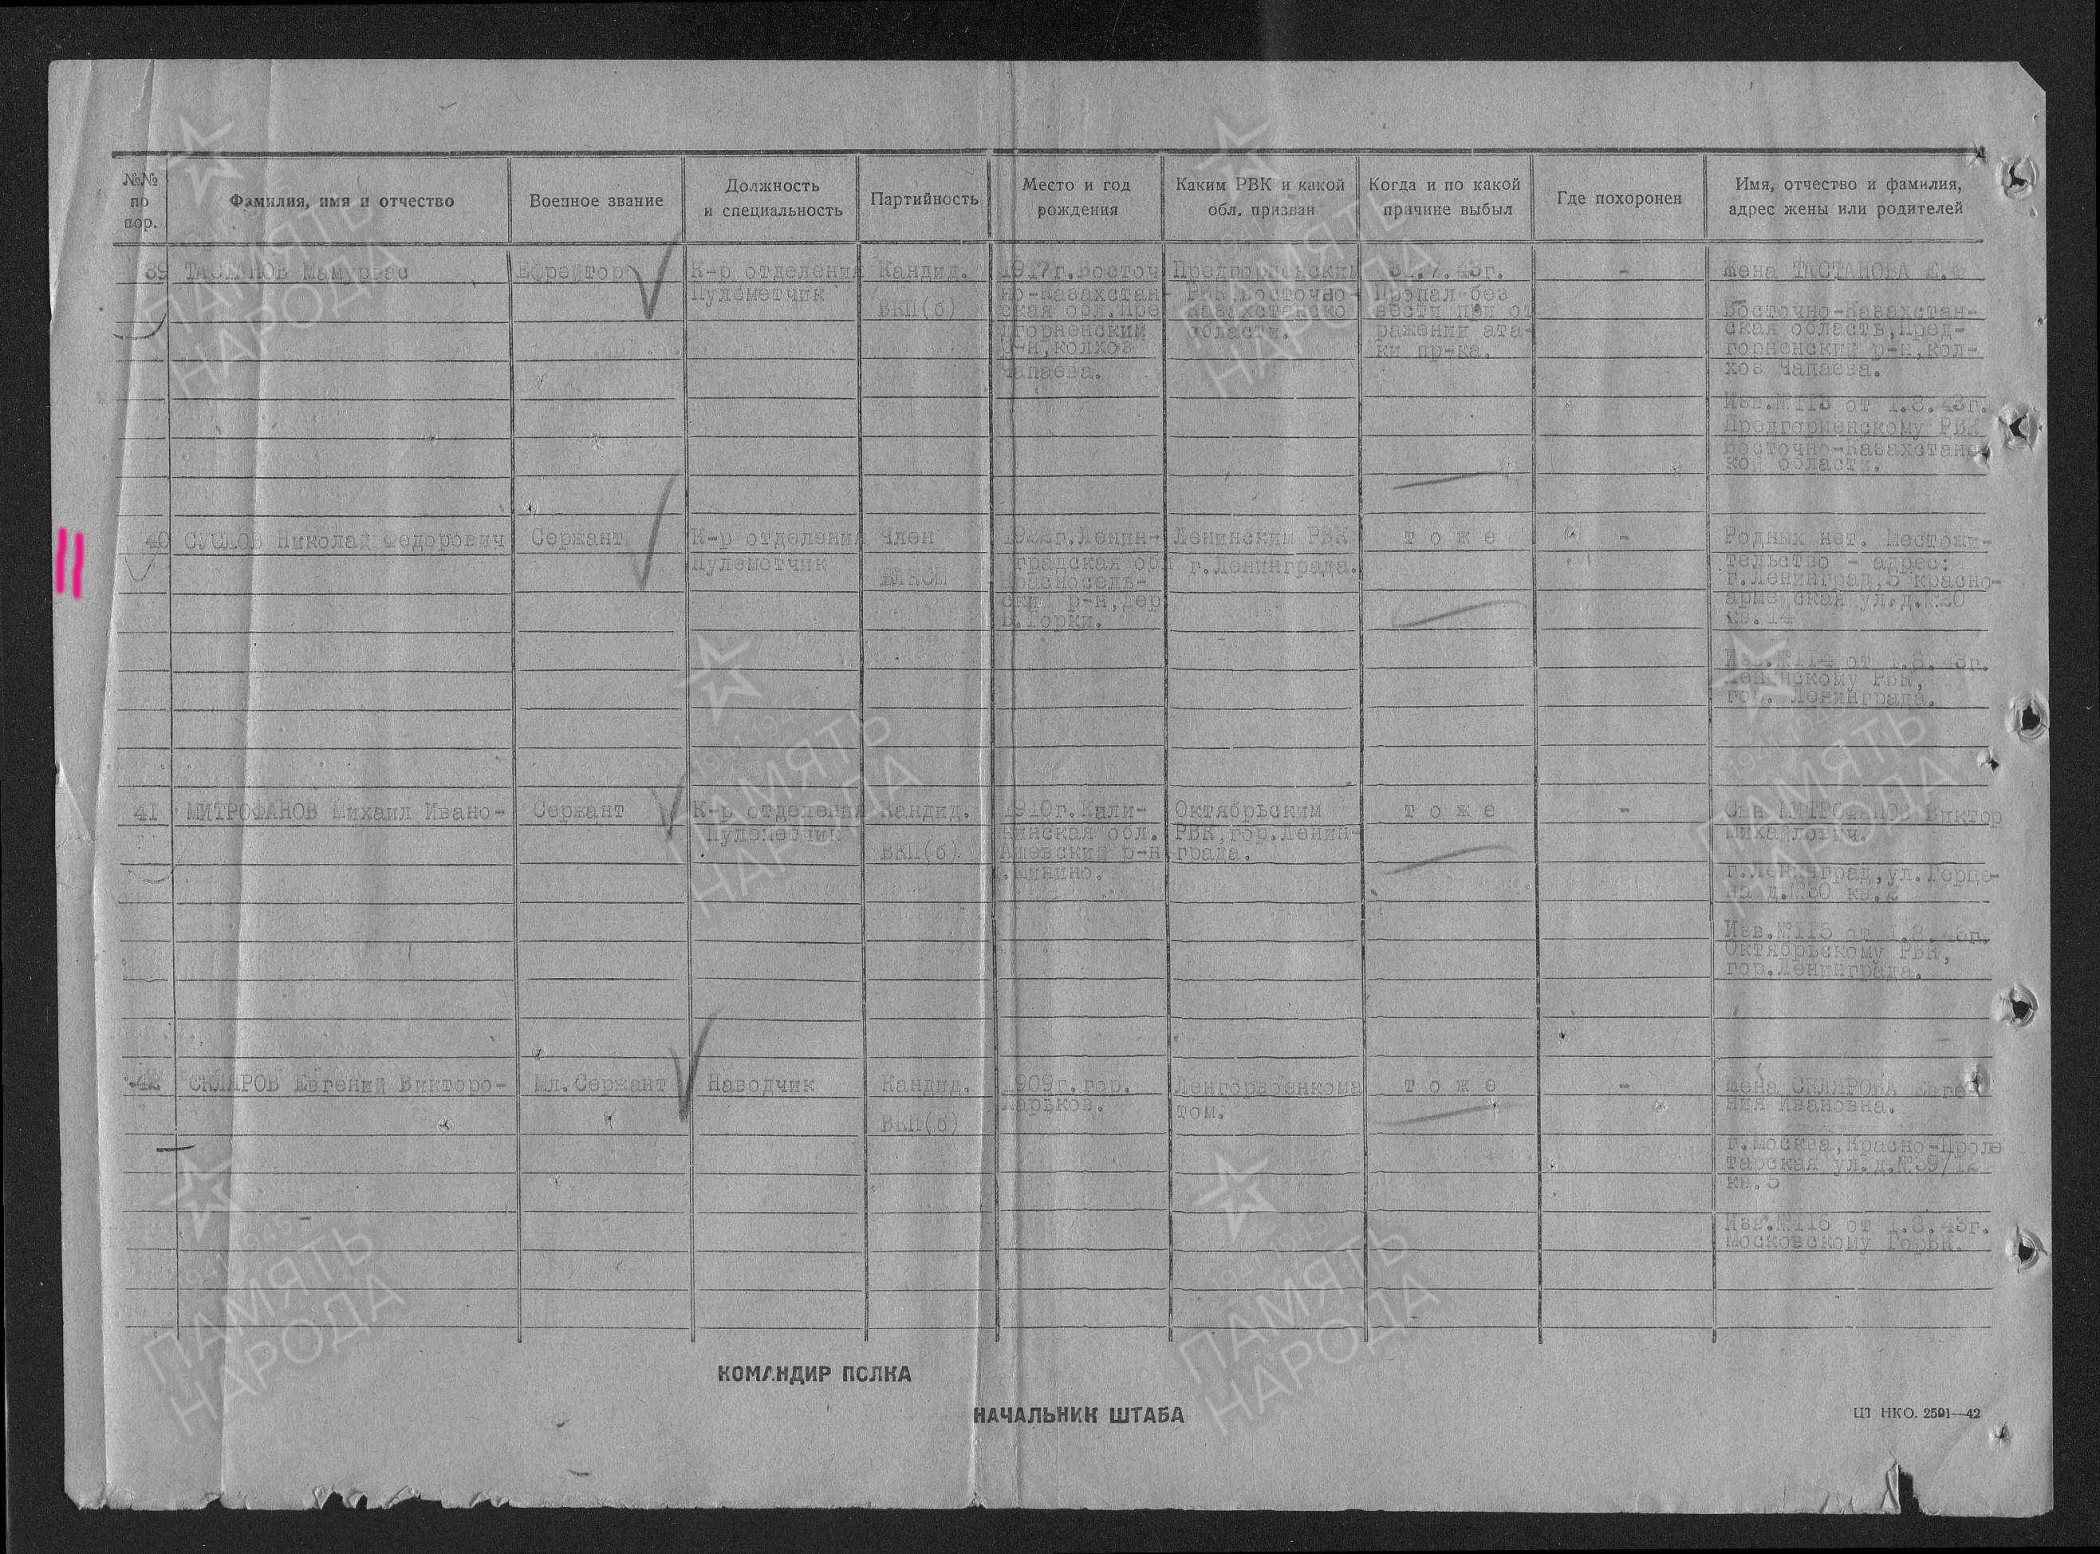 №№ по пор.
Фамилия, имя и отчество
Военное звание
Должность и специальность
Партийность
Место и год рождения
Каким РВК и какой обл. призван
Когда и по какой причине выбыл
Где похоронен
Имя, отчество и фамилия, адрес жены или родителей
39
ТАСТАНОВ
Ефрейтор
К-р отделения
Пулеметчик
Кандид.
ВКП(б)
1917г.Восточ
но-Казахстан-
ская обл.Пре
дгорненский
р-н,колхоз
Чапаева.
Предгорненским
РВК,Восточно-
Казахстанско
области.
31.7.43г.
Пропал без
вести при от
ражении ата-
ки пр-ка.
-
Жена ТАСТАНОВА
Восточно-Казахстан-
ская область,Пред-
горненский р-н,кол-
хоз Чапаева.
Изв.№113 от 1.8.43г.
Предгорненскому РВК
Восточно-Казахстанс
кой области.
40
СУСЛОВ Николай Федорович
Сержант
К-р отделения
Пулеметчик
Член
ВЛКСМ
1922г.Ленин-
градская обл
Красносель-
ский р-н,дер
В.Горки.
Ленинским РВК
г.Ленинграда.
т о ж е
-
Родных нет. Местожи-
тельство - адрес:
г.Ленинград,5 красно-
армейская ул.д.№20
кв.14
Изв.№114 от 1.8.43г.
Ленинскому РВК,
гор. Ленинграда.
41
МИТРОФАНОВ Михаил Ивано-
Сержант
К-р отделения
Пулеметчик
Кандид.
ВКП(б)
1910г.Кали-
нинская обл.
р-н
Октябрьским
РВК,гор.Ленин-
града.
т о ж е
-
Сын МИТРОФАНОВ Виктор
Михайлович.
г.Ленинград,ул.Герце-
на д.№30 кв.2
Изв.№115 от 1.8.43г.
Октябрьскому РВК,
гор.Ленинграда.
42
СКЛЯРОВ Евгений Викторо-
Мл.Сержант
Наводчик
Кандид.
ВКП(б)
1909г.гор.
Харьков.
Ленгорвоенкома
том.
т о ж е
-
Жена СКЛЯРОВА Евге-
ния Ивановна.
г.Москва,Красно-Проле
тарская ул.д.№39/12
кв.5
Изв.№116 от 1.8.43г.
Московскому ГорВК.
КОМАНДИР ПОЛКА
НАЧАЛЬНИК ШТАБА
ЦТ НКО. 2591—42
1941 1945
ПАМЯТЬ
НАРОДА